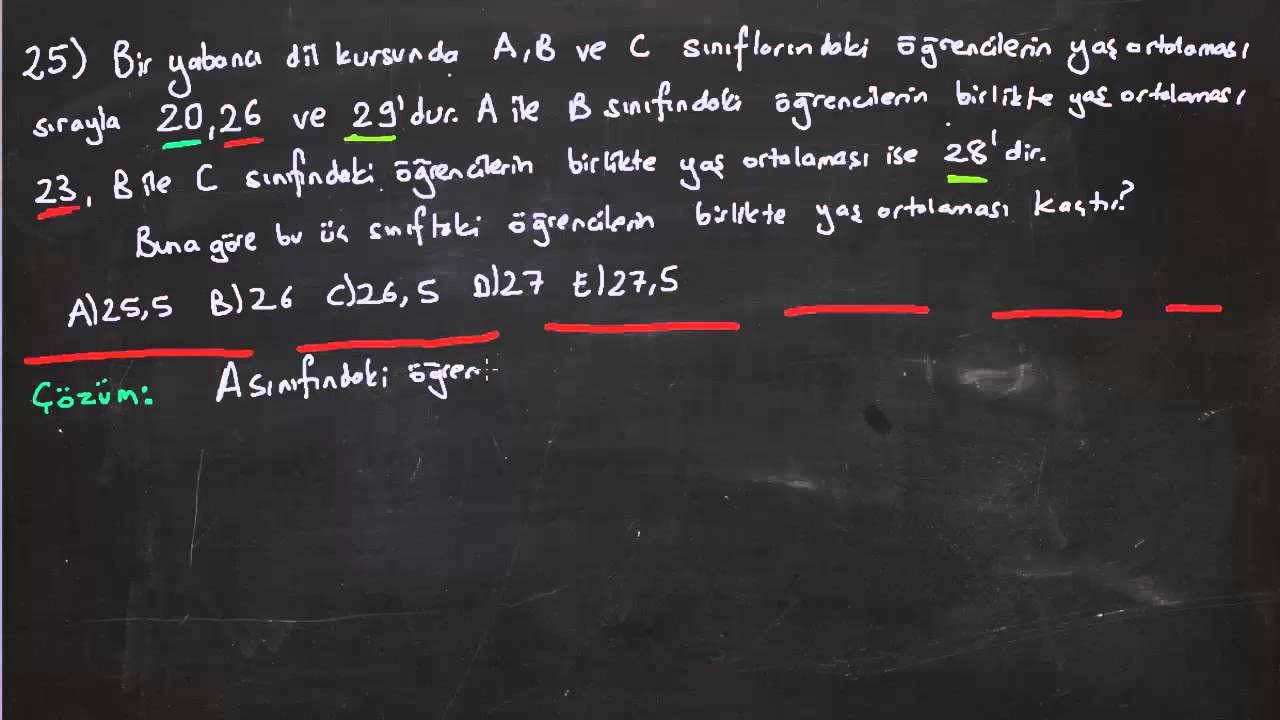 25) Bir yabancı dil kursunda A, B ve C sınıflarındaki öğrencilerin yaş ortalaması
sırayla 20, 26 ve 29'dur. A ile B sınıfındaki öğrencilerin birlikte yaş ortalaması
23, B ile C sınıfındaki öğrencilerin birlikte yaş ortalaması ise 28'dir.
Buna göre bu üç sınıftaki öğrencilerin birlikte yaş ortalaması kaçtır?
A)25,5 B)26 C)26,5 D)27 E)27,5
Çözüm: A sınıfındaki öğren